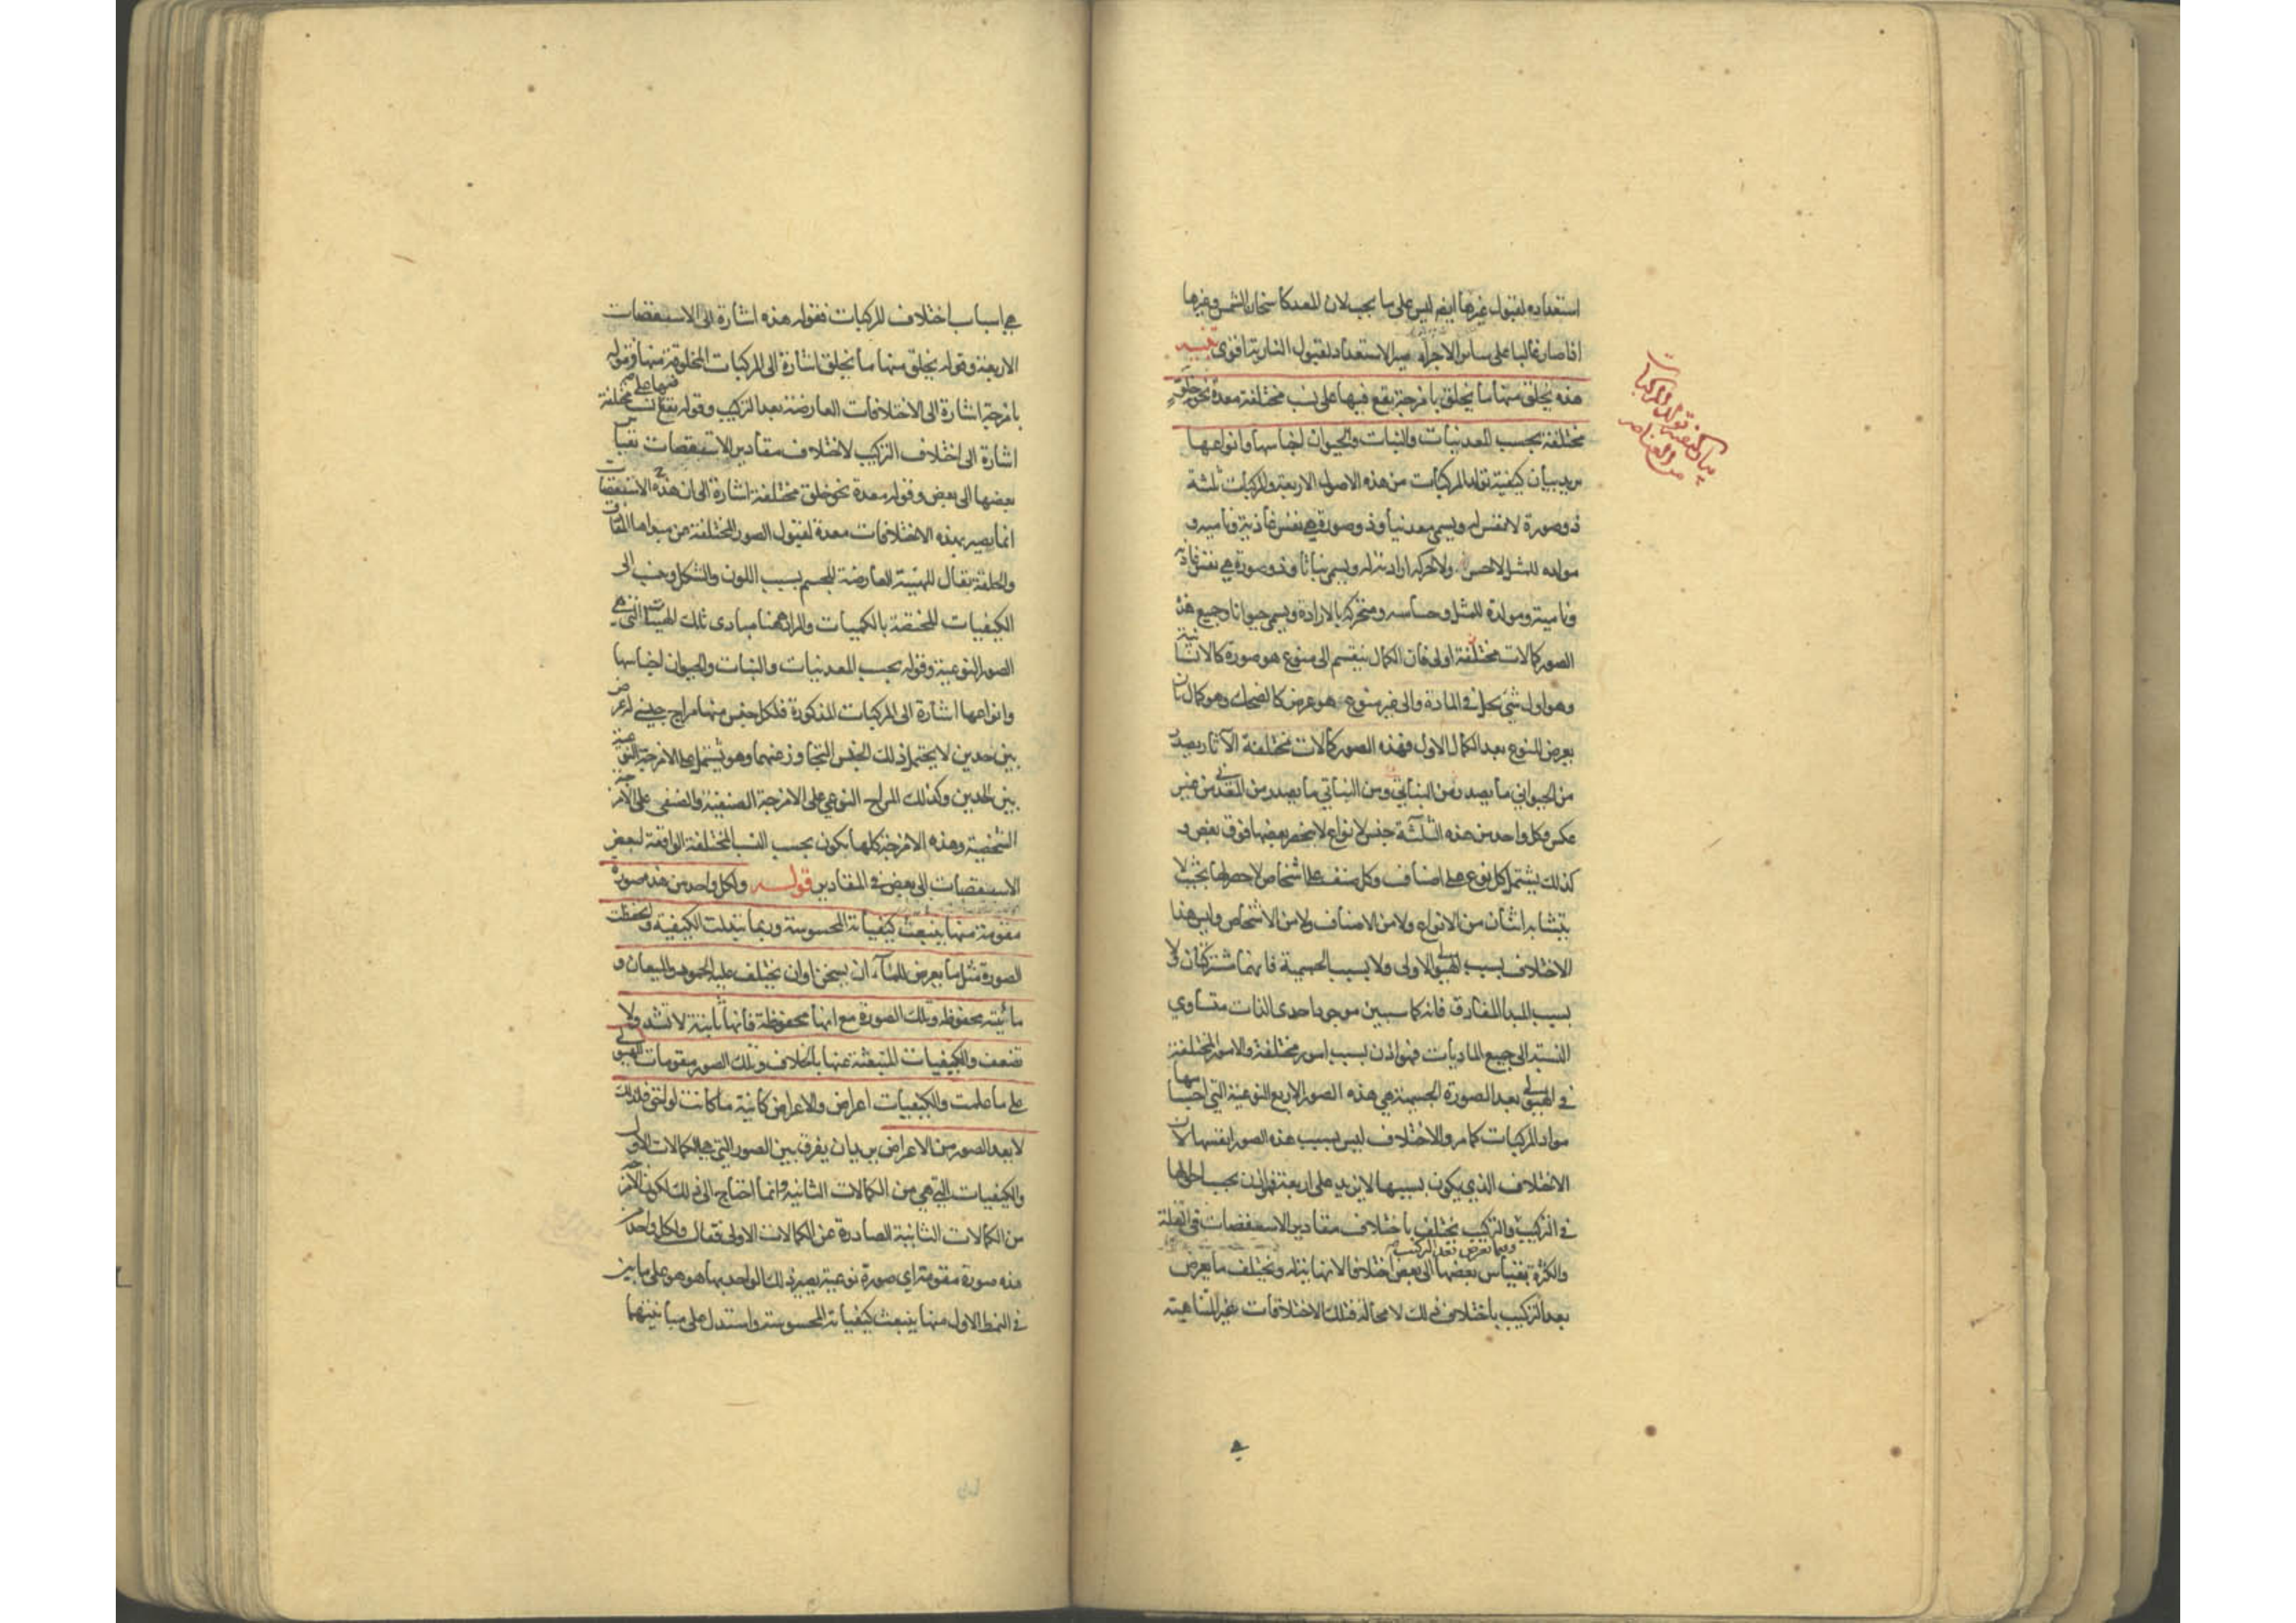 استعداده لقبول غيرها ايضا ليس على ما يجب لان المعد كاسخان الشمس وغيرها
اذا صار غالبا على سائر الاجزاء صير الاستعداد لقبول النارية اقوى تنبيه
هذه يخلق منها ما يخلق بامزجة يقع فيها على نسب مختلفة معدة نحو خلق
مختلفة بحسب المعدنيات والنبات والحيوان اجناسها وانواعها
يريد بيان كيفية تولد المركبات من هذه الاصول الاربعة والمركبات ثلثة
ذو صورة لا نفس له ويسمى معدنيا وذو صورة هي نفس غاذية ونامية و
مولده للمثل لا حس ولا حركة ارادية له ويسمى نباتا وذو صورة هي نفس غاذية
ونامية ومولدة للمثل وحساسه ومتحركة بالارادة ويسمى حيوانا وجميع هذه
الصور كمالات مختلفة اولى فان الكمال ينقسم الى منوع هو صورة كالانسانية
وهو اول شئ يحل في المادة والى غير منوع هو عرض كالضحك وهو كمال ثان
يعرض للنوع بعد الكمال الاول فهذه الصور كمالات مختلفة الآثار يصدر
من الحيواني ما يصدر من النباتي ومن النباتي ما يصدر من المعدني من غير
عكس وكل واحد من هذه الثلثة جنس لانواع لا ينحصر بعضها فوق بعض و
كذلك يشتمل كل نوع على اصناف وكل صنف على اشخاص لا حصر لها بحيث لا
يتشابه اثنان من الانواع ولا من الاصناف ولا من الاشخاص وليس هذا
الاختلاف بسبب الهيولى الاولى ولا بسبب الجسمية فانهما مشتركتان ولا
بسبب المبدأ المفارق فانه كما سيبين موجود احدى الذات متساوي
النسبة الى جميع الماديات فهو اذن بسبب امور مختلفة والامور المختلفة
في الهيولى بعد الصورة الجسمية هي هذه الصور الاربع النوعية التي اجسامها
مواد المركبات كما مر والاختلاف ليس بسبب هذه الصور انفسها لان
الاختلاف الذي يكون بسببها لا يزيد على اربعة فهو اذن بحسب احوالها
في التركيب والتركيب يختلف باختلاف مقادير الاسطقسات في القلة
وفيما يعرض بعد التركيب
والكثرة بقياس بعضها الى بعض اختلافا لا نهاية له ويختلف ما يعرض
بعد التركيب باختلاف ذلك لا محالة فتلك الاختلافات غير المتناهية
بيان كيفية تولد المركبات
من العناصر
هي اسباب اختلاف المركبات فقوله هذه اشارة الى الاسطقسات
الاربعة وقوله يخلق منها ما يخلق اشارة الى المركبات المخلوقة منها وقوله
بامزجة اشارة الى الاختلافات العارضة بعد التركيب وقوله يقع فيها على نسب مختلفة
اشارة الى اختلاف التركيب لاختلاف مقادير الاسطقسات بقياس
بعضها الى بعض وقوله معدة نحو خلق مختلفة اشارة الى ان هذه الاسطقسات
انما يصير بهذه الاختلافات معدة لقبول الصور المختلفة من مبدأها المفارق
والخلقة يقال للهيئة العارضة للجسم بسبب اللون والشكل وينسب الى
الكيفيات المختصة بالكميات والمراد ههنا مبادى تلك الهيئات التي هي
الصور النوعية وقوله بحسب المعدنيات والنبات والحيوان اجناسها
وانواعها اشارة الى المركبات المذكورة فلكل جنس منها مزاج جنسي له عرض
بين حدين لا يحتمل ذلك الجنس التجاوز عنهما وهو يشتمل على الامزجة النوعية
بين الحدين وكذلك المزاج النوعي على الامزجة الصنفية والصنفي على الامزجة
الشخصية وهذه الامزجة كلها يكون بحسب النسب المختلفة الواقعة لبعض
الاسطقسات الى بعض في المقادير قوله ولكل واحد من هذه صورة
مقومة منها ينبعث كيفياته المحسوسة وربما تبدلت الكيفية وانحفظت
الصورة مثل ما يعرض للماء ان يسخن او ان يختلف عليه الجمود والميعان و
مائيته محفوظة وتلك الصورة مع انها محفوظة فانها ثابتة لا تشتد ولا
تضعف والكيفيات المنبعثة عنها بالخلاف وتلك الصور مقومات للهيولى
على ما علمت والكيفيات اعراض والاعراض كائنة ما كانت لواحق فلذلك
لا يعد الصور من الاعراض يريد ان يفرق بين الصور التي هي الكمالات الاولى
والكيفيات التي هي من الكمالات الثانية وانما احتاج الى ذلك لكون الامزجة
من الكمالات الثانية الصادرة عن الكمالات الاولى فقال ولكل واحد من
هذه صورة مقومة اي صورة نوعية يصير ذلك الواحد بها هو هو على ما بين
في النمط الاول منها ينبعث كيفياته المحسوسة واستدل على مباينتهما